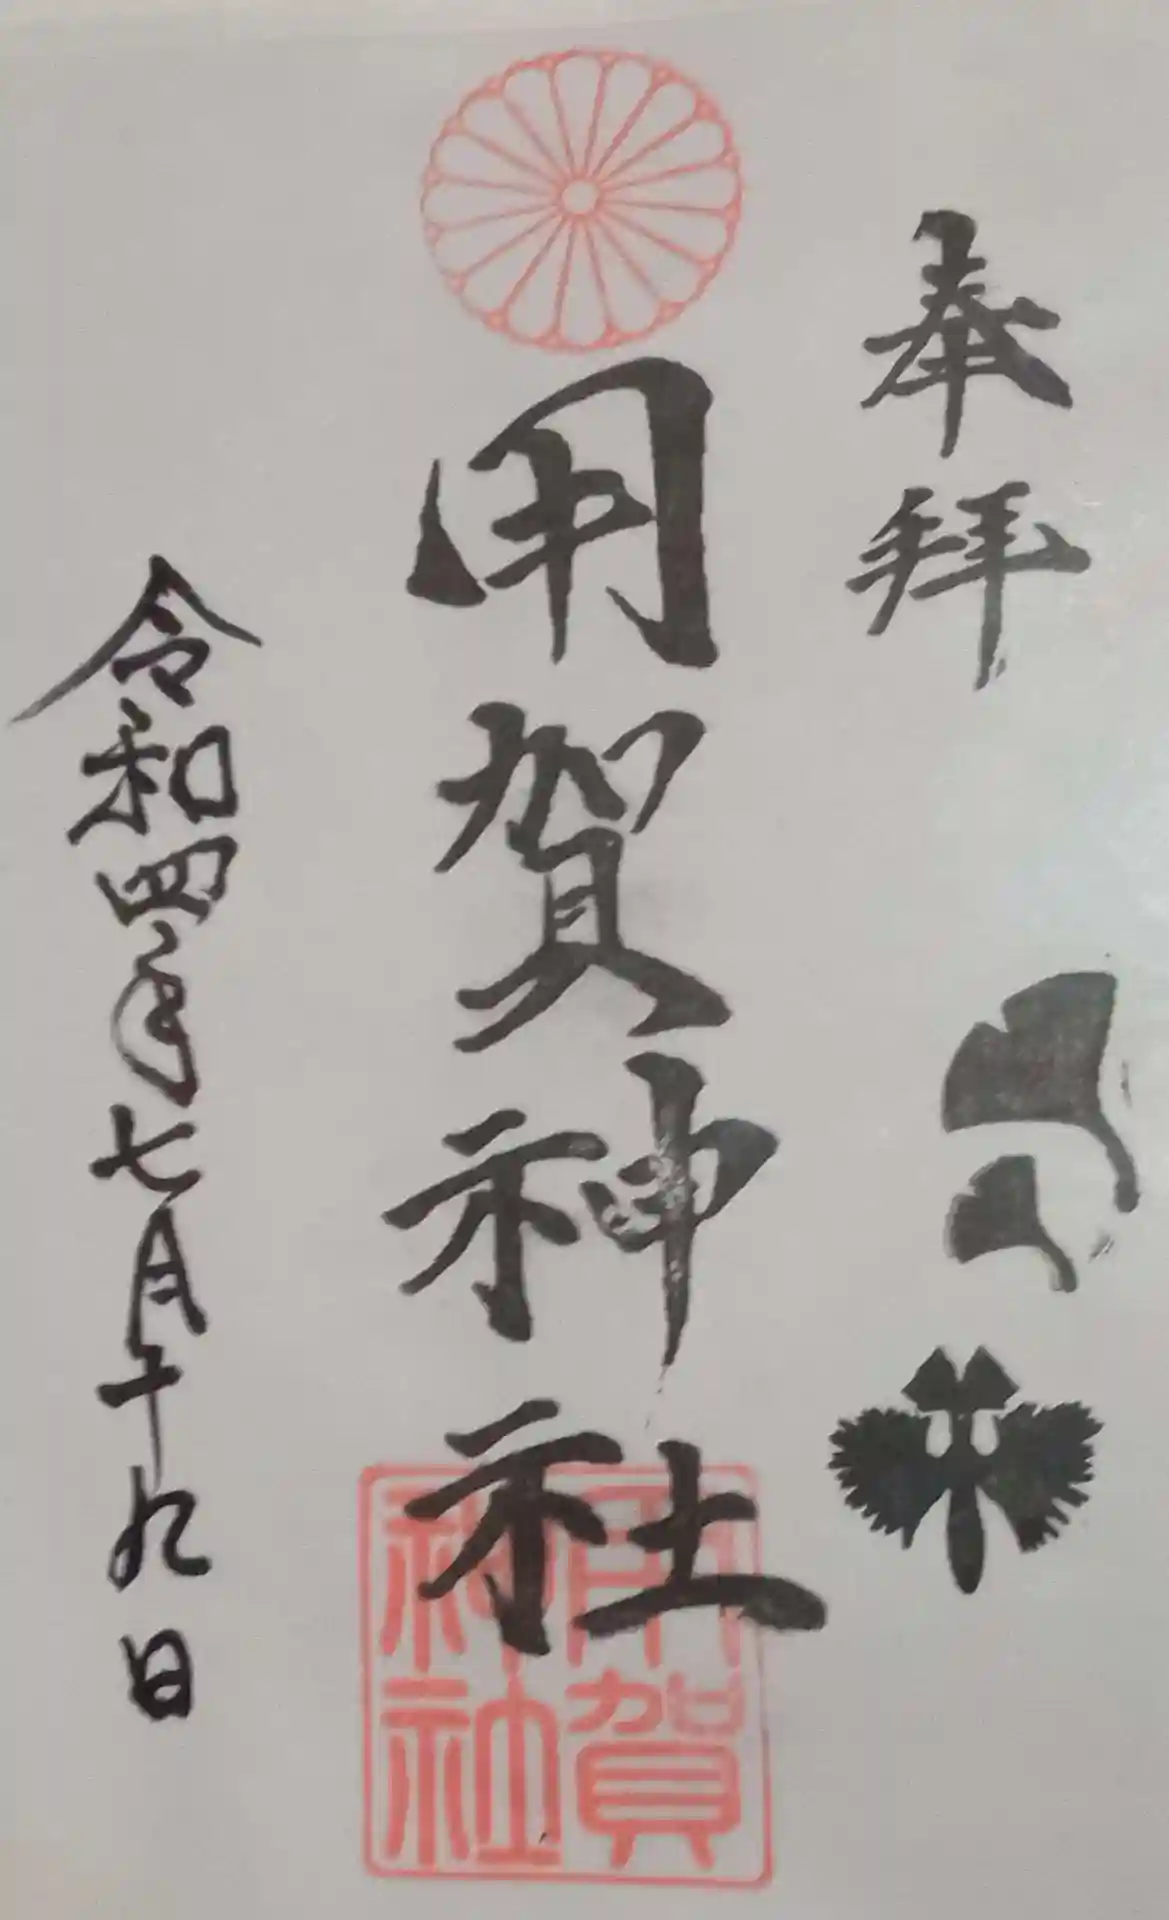 奉拜
用賀神社
用賀神社
令和四年七月十九日